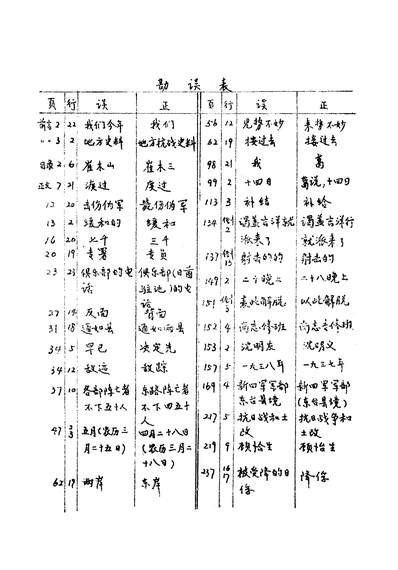 勘误表
页 行 误 正
前言2 22 我们今年 我们
〃〃3 2 地方史料 地方抗战史料
目录2 6 崔木山 崔木三
正文7 21 渡过 度过
12 20 击伤伪军 毙伤伪军
13 2 缓和的 缓和
16 20 七千 三千
20 19 专署 专员
23 23 俱乐部的电 俱乐部(日酋
话 驻地)的电
话
27 14 反面 背面
31 18 通如县 通如两县
34 5 早已 决定先
34 12 敌远 敌踪
37 10 各部阵亡者 东路阵亡者
不下五十人 不下四五十
人
47 五月(农历三 四月二十八日
月二十五日) (农历三月二
十八日)
62 19 两岸 东岸
页 行 误 正
56 12 见势不妙 来势不妙
62 19 接过去 接过去
98 21 我 高
99 2 十四日 高说,十四日
113 3 补结 补给
134 谒盖吉洋就 谒盖吉洋行
派来了 就派来了
137 射击的的 射击的
149 2 二十晚二 二十八晚上
151 袁此解脱 以此解脱
152 4 尚志修班 尚志专修班
153 2 沈明友 沈明义
157 5 一九三八年 一九三七年
169 4 新四军军部 新四军军部
(东台县境)
217 5 抗日战和土 抗日战争和
改 土改
219 9 顾恰生 顾怡生
237 接受降的日 降俘
俘